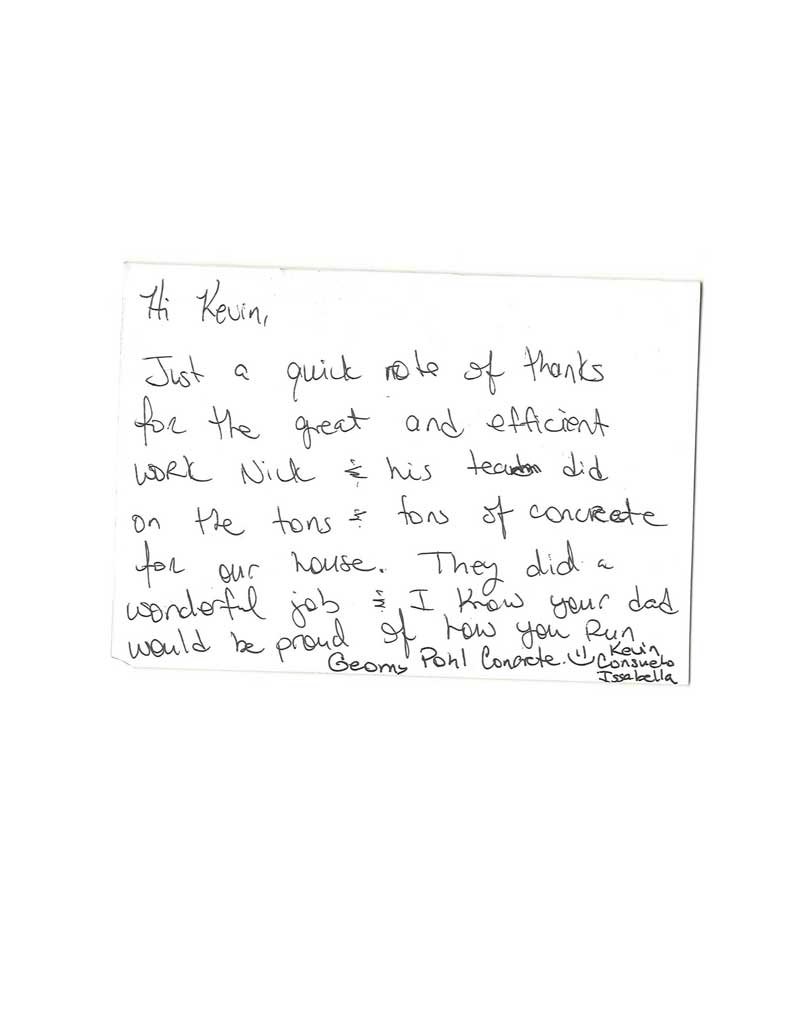 Hi Kevin,
Just a quick note of thanks
for the great and efficient
work Nick & his team did
on the tons & tons of concrete
for our house. They did a
wonderful job & I know your dad
would be proud of how you Run
Pohl Concrete. :)
Kevin
Consuelo
Issabella